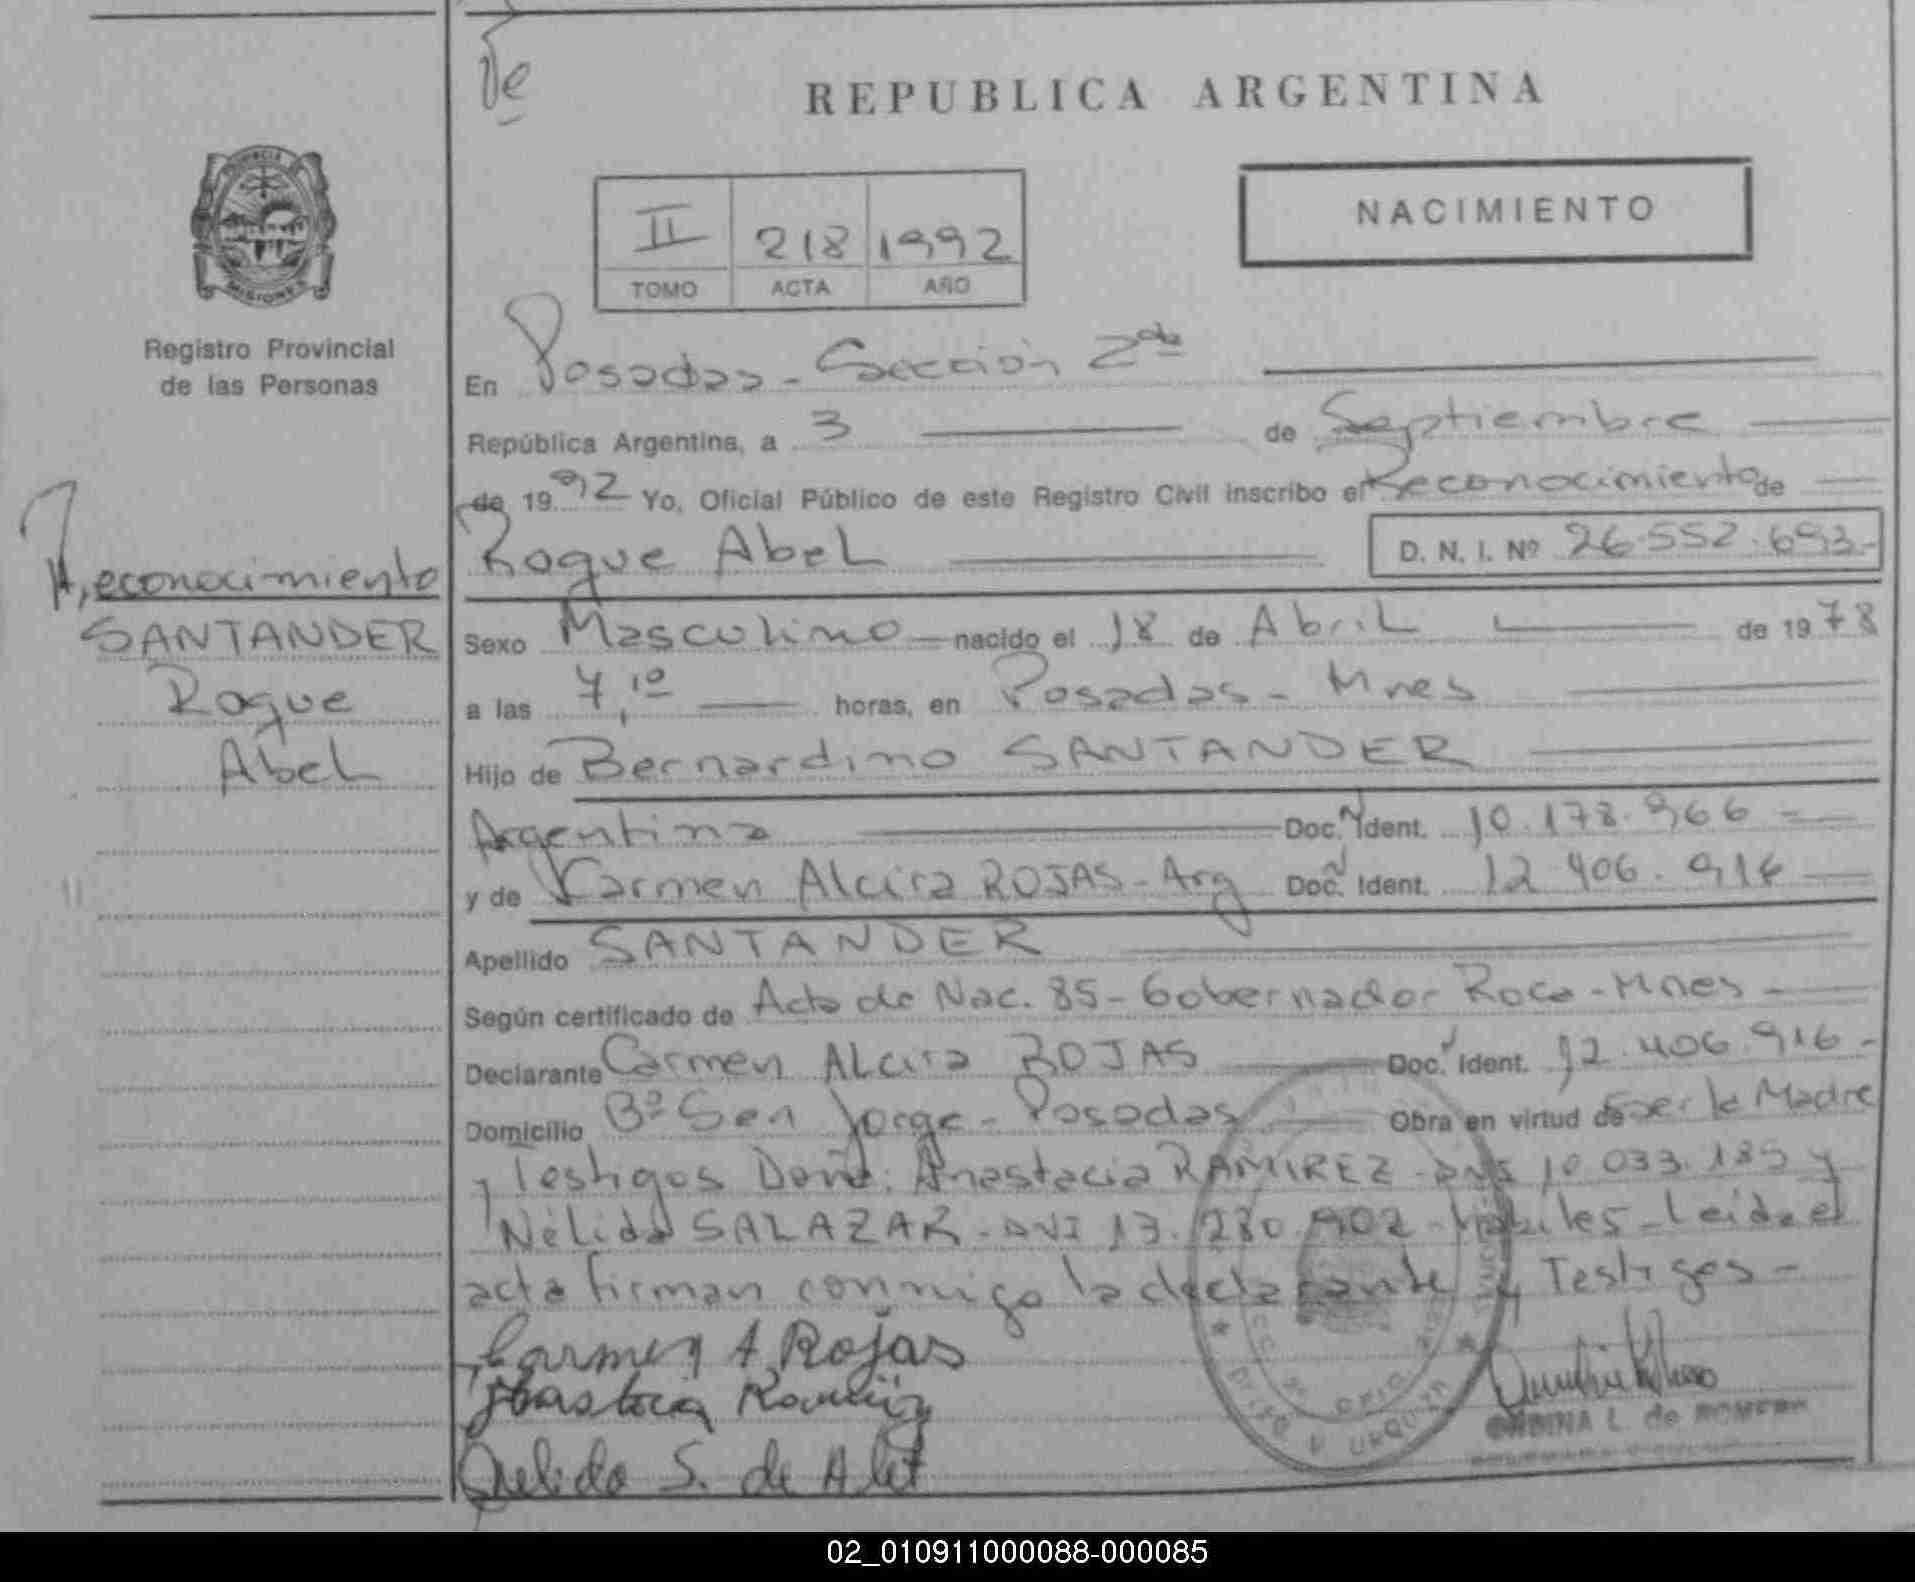 REPUBLICA ARGENTINA
NACIMIENTO
II 218 1992
TOMO ACTA AÑO
MISIONES
Registro Provincial
de las Personas
Reconocimiento
SANTANDER
Roque
Abel
En Posadas - Sección 2da
República Argentina, a 3 de Septiembre
de 1992 Yo, Oficial Público de este Registro Civil inscribo el Reconocimiento de
Roque Abel D. N. I. Nº 26.552.693.-
Sexo Masculino nacido el 18 de Abril de 1978
a las 7,10 horas, en Posadas - Mnes
Hijo de Bernardino SANTANDER
Argentina Doc. Ident. 10.178.966
y de Carmen Alcira ROJAS - Arg Doc. Ident. 12.406.916
Apellido SANTANDER
Según certificado de Acta de Nac. 85 - Gobernador Roca - Mnes -
Declarante Carmen Alcira ROJAS Doc. Ident. 12.406.916 -
Domicilio Bº San Jorge - Posadas Obra en virtud de Ser la Madre
y Testigos Doña: Anastacia RAMIREZ - DNI 10.033.185 y
Nélida SALAZAR - DNI 13.280.902 - hábiles - Leída el
acta firman conmigo la declarante y Testigos -
Carmen A Rojas
Anastacia Ramirez
S. de
L. de ROMERO
02_010911000088-000085